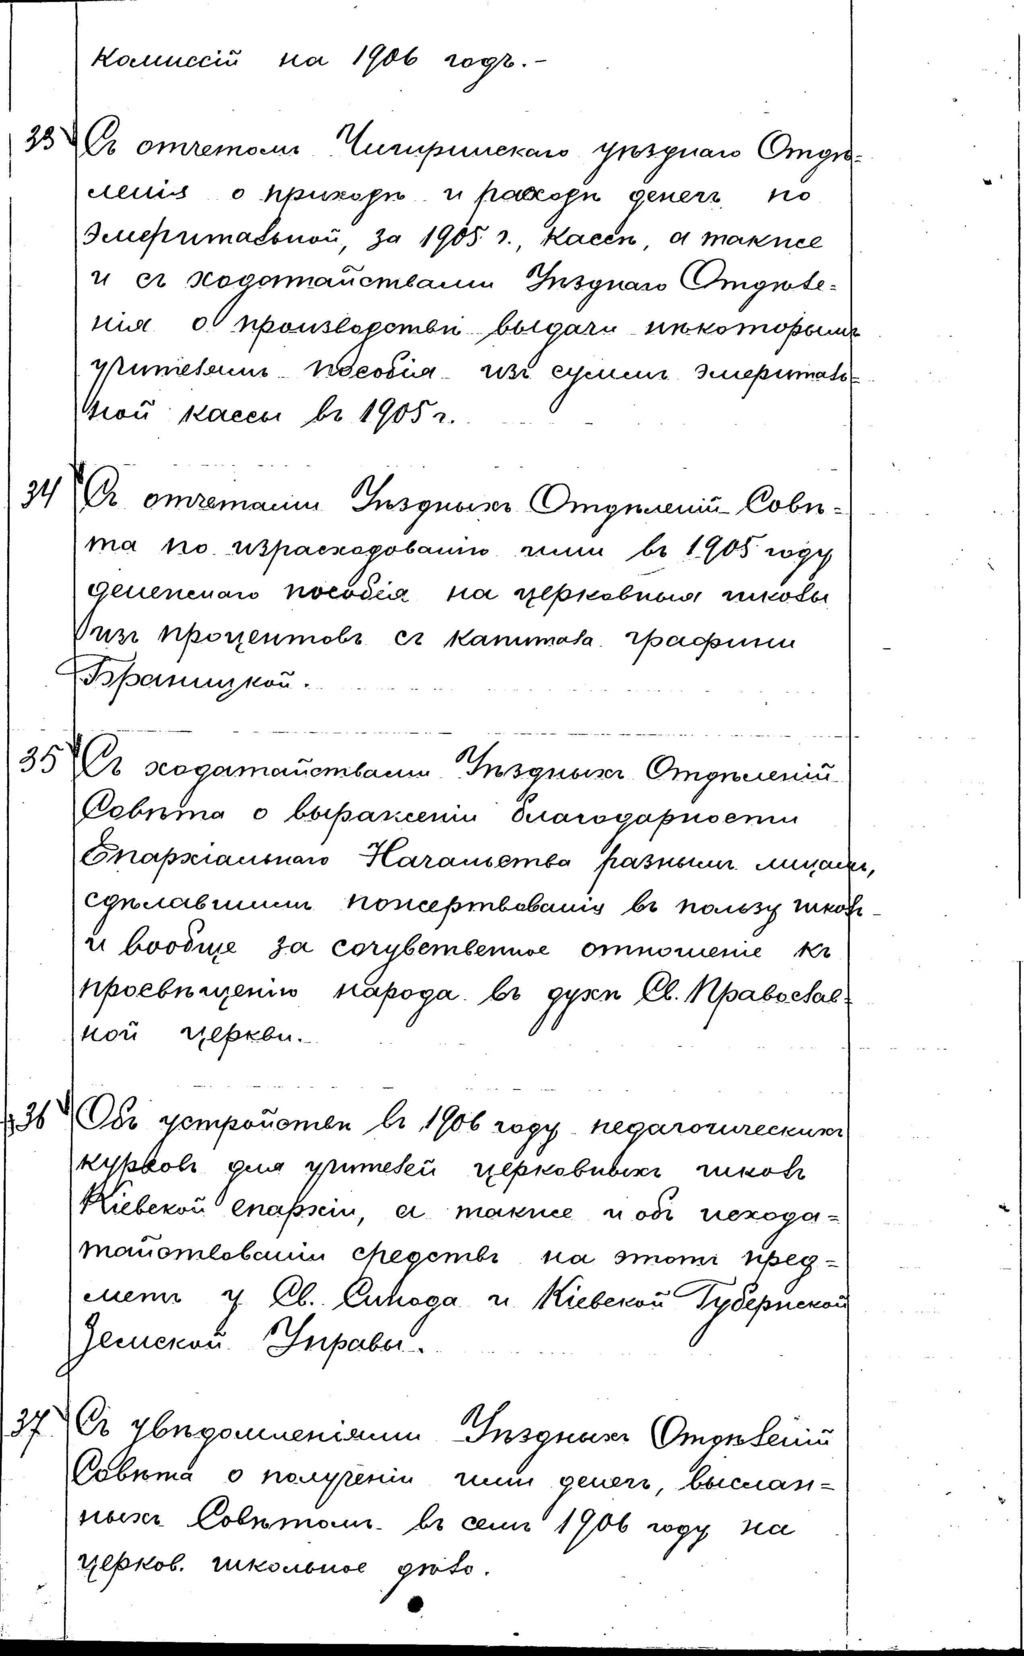 Комиссій на 1906 годъ.-
33 Съ отчетомъ Чигиринскаго уѣзднаго Отдѣ=
ленія о приходѣ и расходѣ денегъ по
Эмеритальной, за 1905 г., кассѣ, а также
и съ ходатайствами Уѣзднаго Отдѣле=
нія о производствѣ выдачи нѣкоторымъ
учителямъ пособія изъ суммъ эмериталь=
ной кассы въ 1905 г.
34 Съ отчетами Уѣздныхъ Отдѣленій Совѣ=
та по израсходованію ими въ 1905 году
денежнаго пособія на церковныя школы
изъ процентовъ съ капитала графини
Браницкой.
35 Съ ходатайствами Уѣздныхъ Отдѣленій
Совѣта о выраженіи благодарности
Епархіальнаго Начальства разнымъ лицамъ,
сдѣлавшимъ пожертвованія въ пользу школъ
и вообще за сочувственное отношеніе къ
просвѣщенію народа въ духѣ Св. Православ=
ной церкви.
36 Объ устройствѣ въ 1906 году педагогическихъ
курсовъ для учителей церковныхъ школъ
Кіевской епархіи, а также и объ исхода=
тайствованіи средствъ на этотъ пред=
метъ у Св. Синода и Кіевской Губернской
Земской Управы.
37 Съ увѣдомленіями Уѣздныхъ Отдѣленій
Совѣта о полученіи ими денегъ, выслан=
ныхъ Совѣтомъ въ семъ 1906 году на
церков. школьное дѣло.